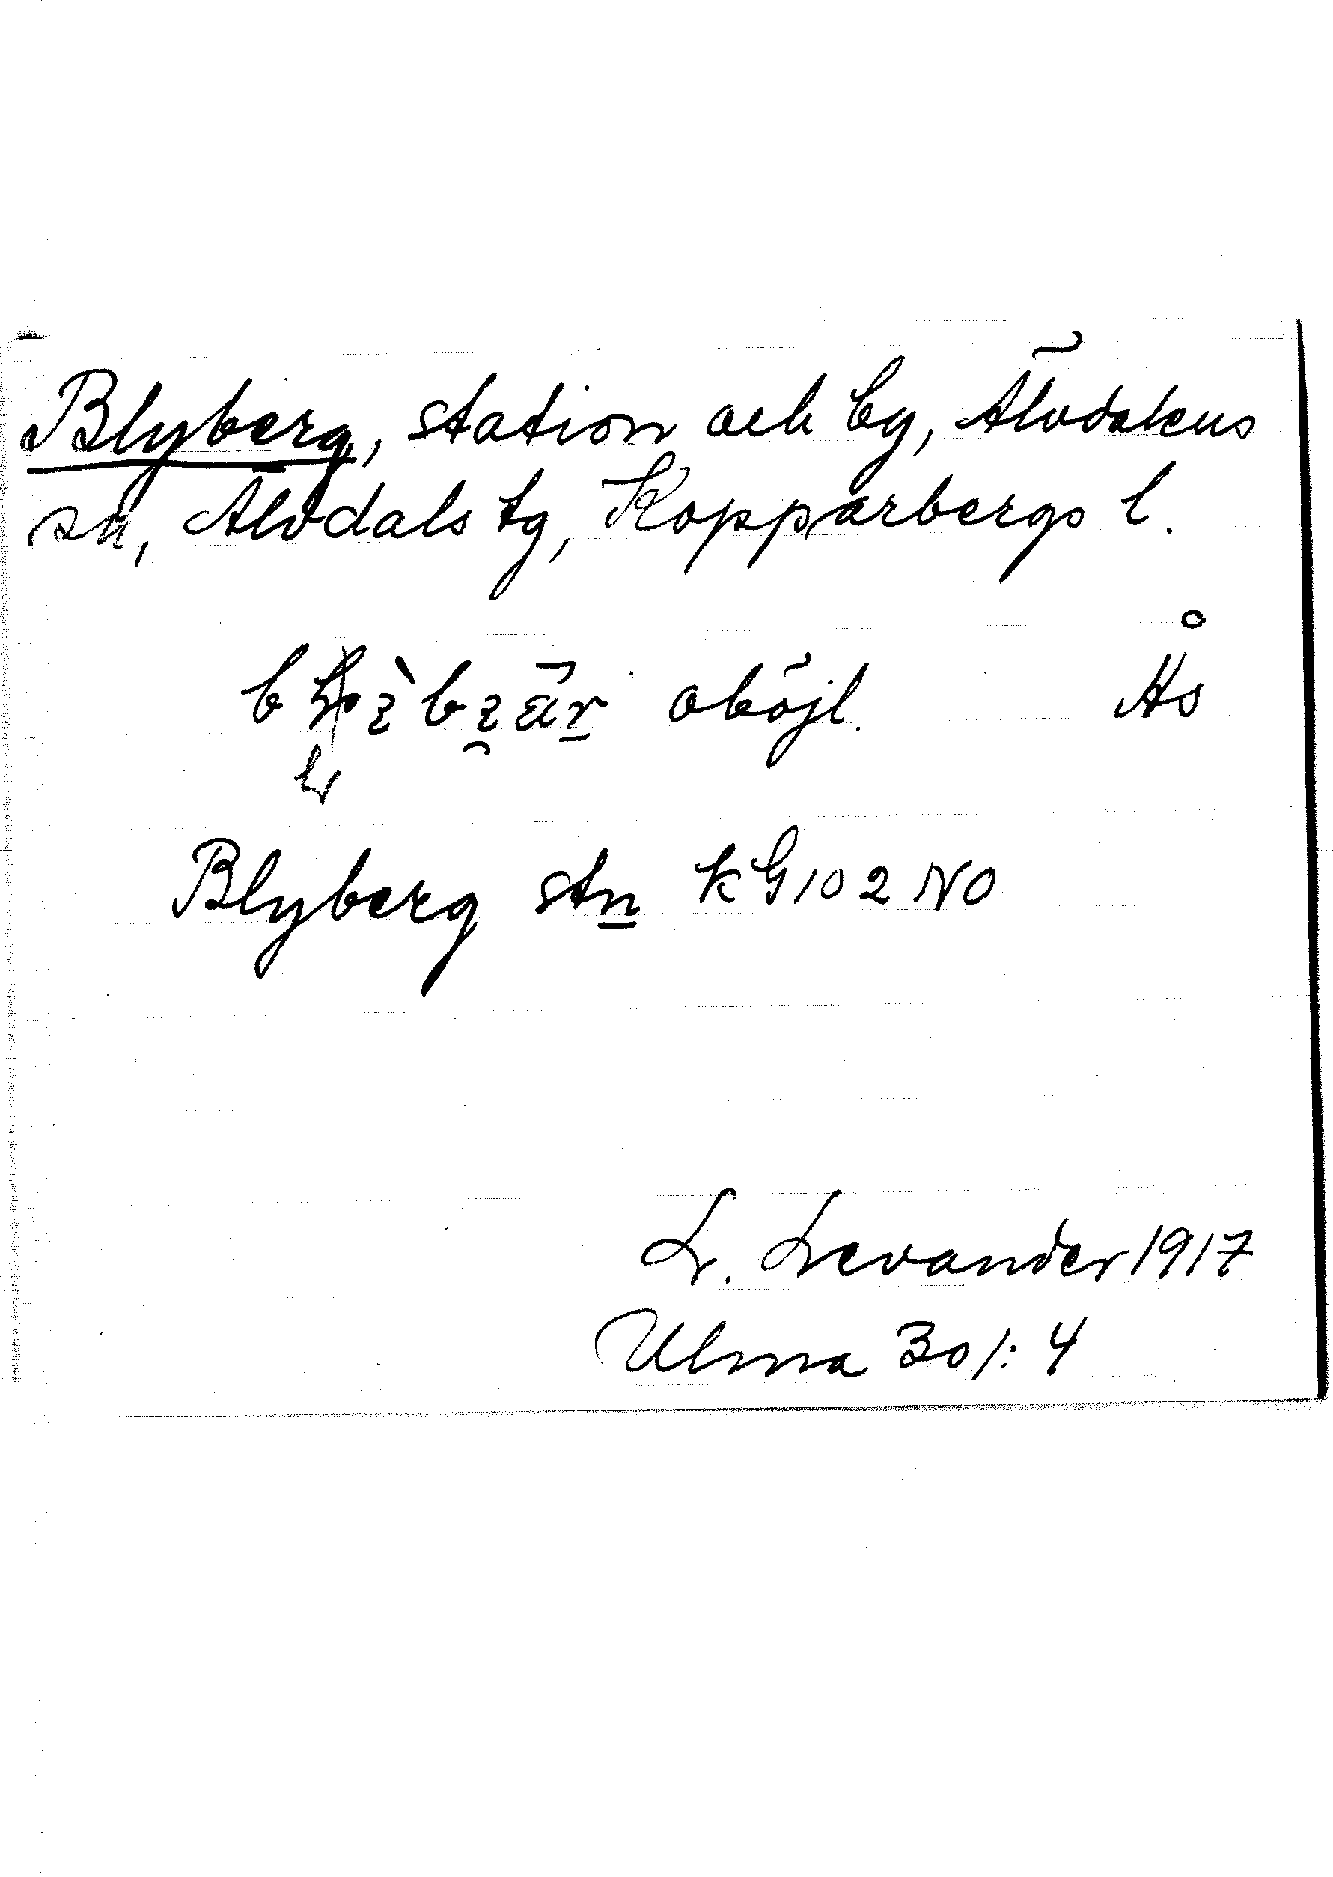 Blyberg, station och by, Älvdalens
sn, Älvdals tg, Kopparbergs l.
oböjl. Ås
Blyberg stn kG102NO
L. Levander 1917
Ulma 301:4